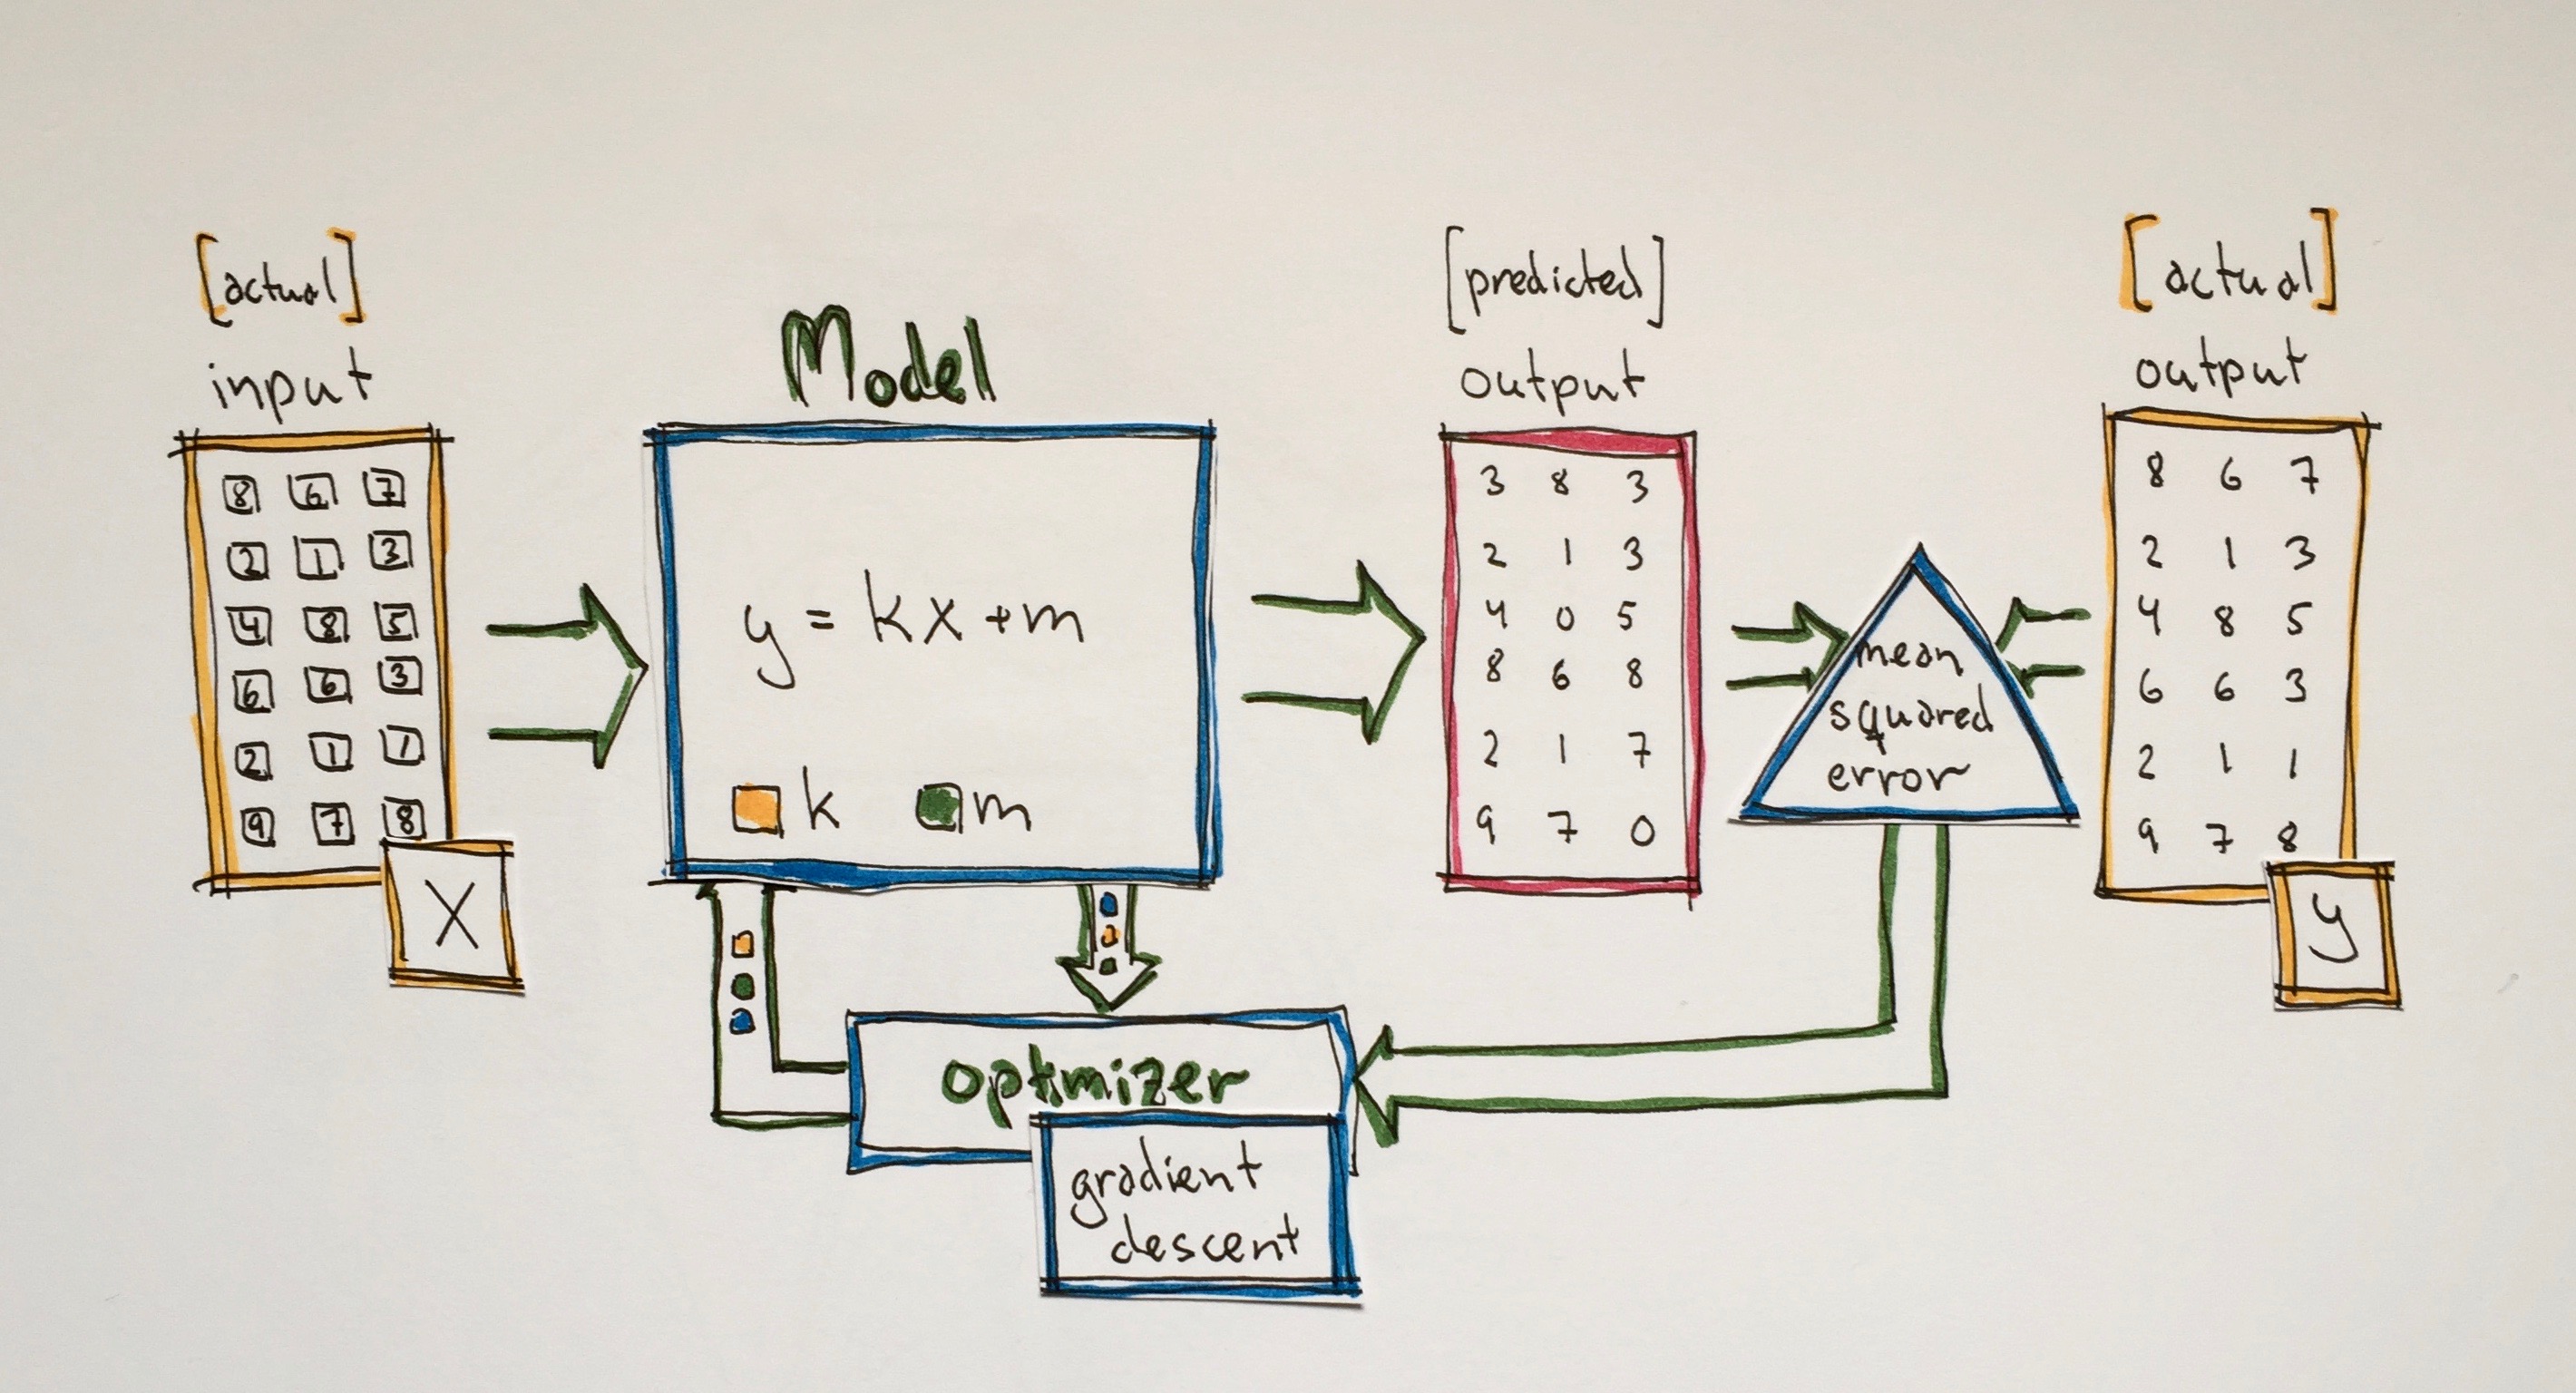 [actual]
input
8 6 7
2 1 3
4 8 5
6 6 3
2 1 1
9 7 8
X
Model
y = kx + m
k m
[predicted]
output
3 8 3
2 1 3
4 0 5
8 6 8
2 1 7
9 7 0
mean
squared
error
[actual]
output
8 6 7
2 1 3
4 8 5
6 6 3
2 1 1
9 7 8
y
optimizer
gradient
descent